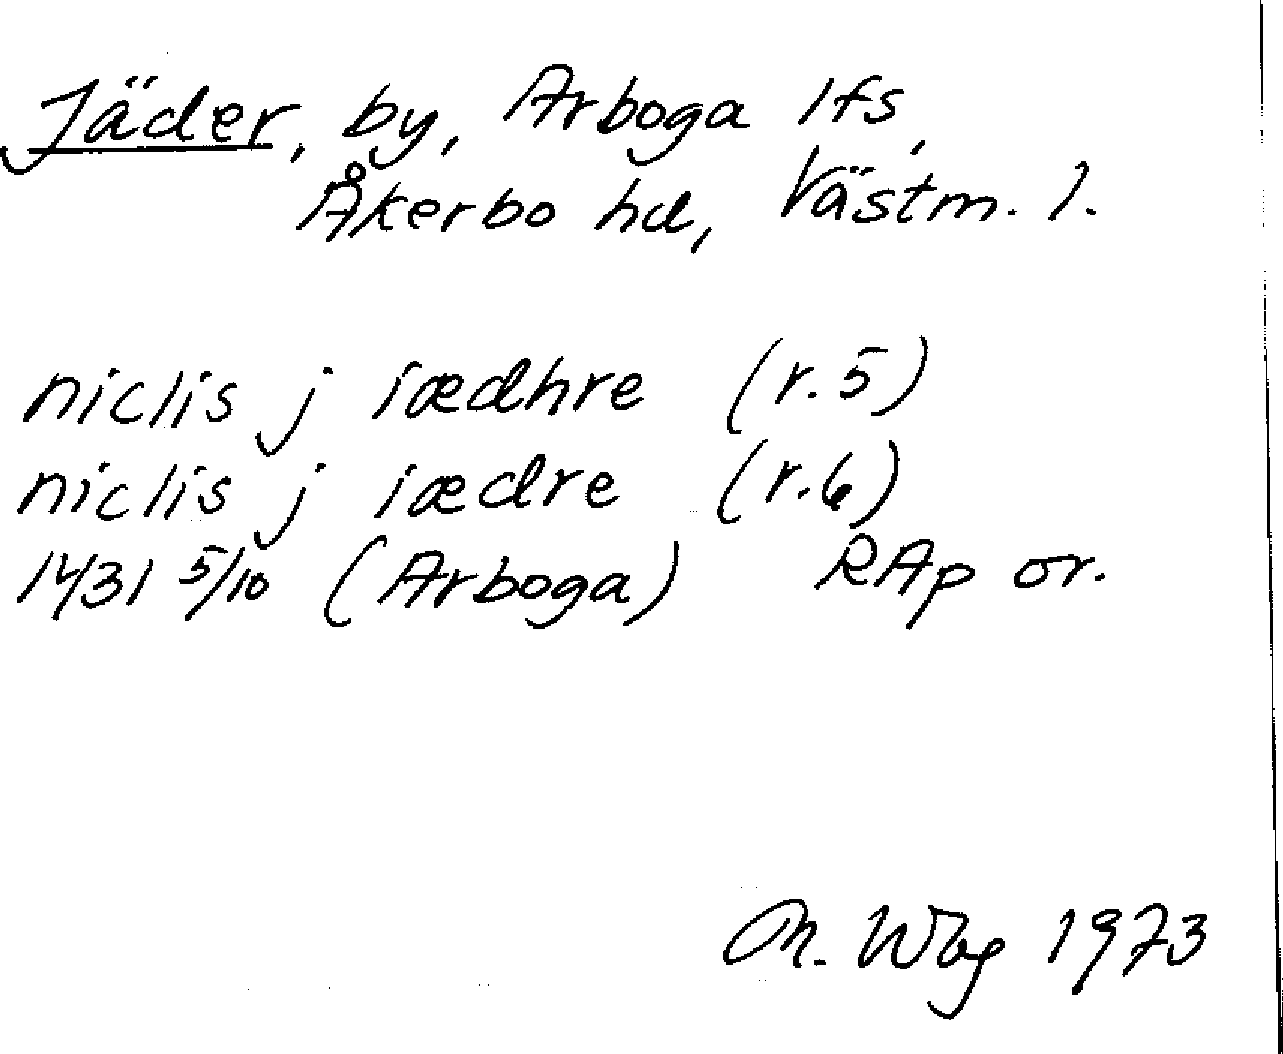 Jäder, by, Arboga lfs,
Åkerbo hd, Västm. l.
niclis j iædhre (r.5)
niclis j iædre (r.6)
1431 5/10 (Arboga) RAp or.
M. Wbg 1973